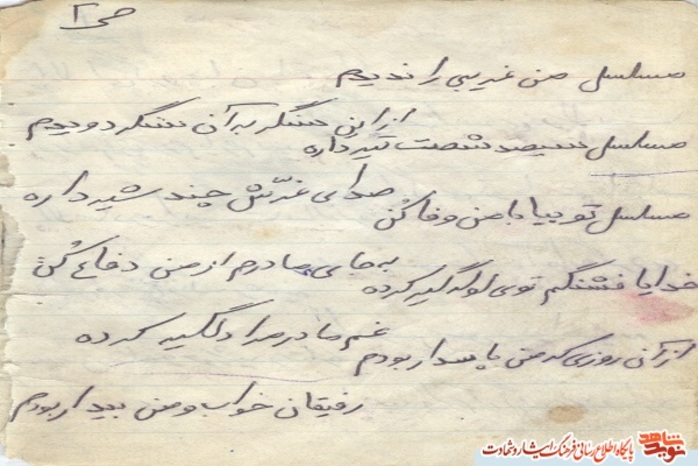 ص ۲
مسلسل من غریبی را ندیدم
از این سنگر به آن سنگر دویدم
مسلسل سیصد شصت تیر داره
صدای غرّش چند شیر داره
مسلسل تو بیا با من وفا کن
به جای مادرم از من دفاع کن
خدایا فشنگم توی لوله گیر کرده
غم مادر مرا دلگیر کرده
از آن روزی که من پاسدار بودم
رفیقان خواب و من بیدار بودم
نوید شاهد
پایگاه اطلاع رسانی فرهنگ ایثار و شهادت